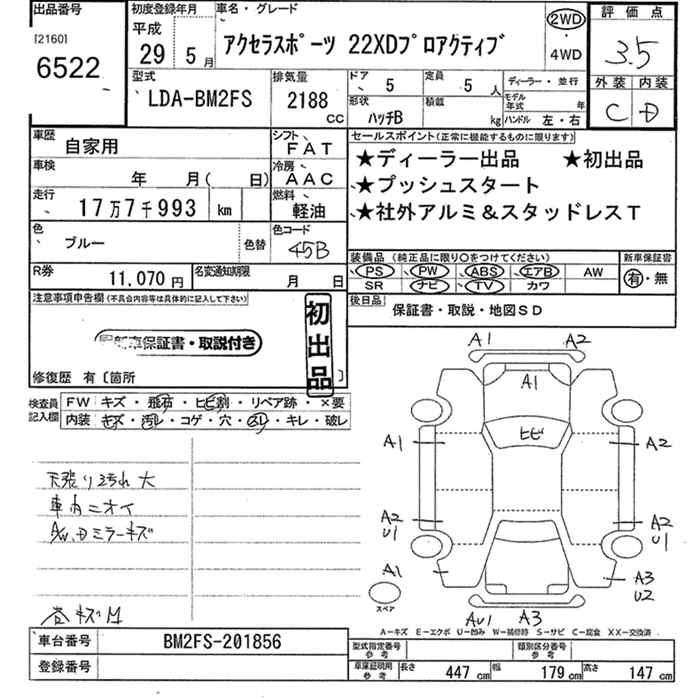 出品番号
[2160]
6522
初度登録年月
平成
29 年 5 月
車名・グレード
アクセラスポーツ 22XDプロアクティブ
2WD
・
4WD
評価点
3.5
外装 内装
C D
型式
LDA-BM2FS
排気量
2188
CC
ドア 5
形状 ハッチB
定員 5 人
積載 kg
ディーラー・並行
モデル年式 年
ハンドル 左・右
車歴
自家用
シフト
FAT
車検
年 月( 日)
冷房
AAC
走行
17万7千993 km
燃料
軽油
色
ブルー
色替
色コード
45B
R券
11,070円
名変通知期限
月 日
セールスポイント(正常に機能するものに限ります)
★ディーラー出品 ★初出品
★プッシュスタート
★社外アルミ&スタッドレスT
装備品(純正品に限り○をつけてください)
PS PW ABS エアB AW
SR ナビ TV カワ
新車保証書
有・無
後日品
保証書・取説・地図SD
注意事項申告欄(不具合内容等は具体的に記入して下さい)
新車保証書・取説付き
初出品
修復歴 有〔箇所 〕
検査員記入欄
FW キズ・飛石・ヒビ割・リペア跡・×要
内装 キズ・汚レ・コゲ・穴・ヘリ・キレ・破レ
天張り汚れ大
車内ニオイ
ミラーキズ
キズM
A1 A2
A1
ヒビ
A1 A2
A2 A2
U1 U1
A1 A3
U2
スペア
AU1 A3
A-キズ E-エクボ U-凹み W-補修跡 S-サビ C-腐食 XX-交換済
車台番号 BM2FS-201856
登録番号
型式指定番号 参考
類別区分番号 参考
車庫証明用 参考 長さ 447 cm 幅 179 cm 高さ 147 cm